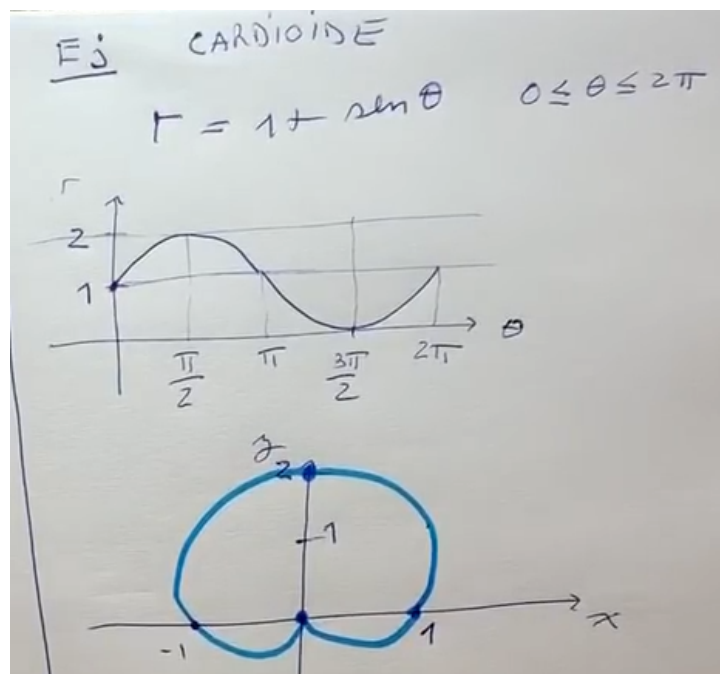 Ej CARDIOIDE
r = 1 + sen θ 0 ≤ θ ≤ 2π
r
2
1
π/2 π 3π/2 2π θ
y
2
1
-1 1 x